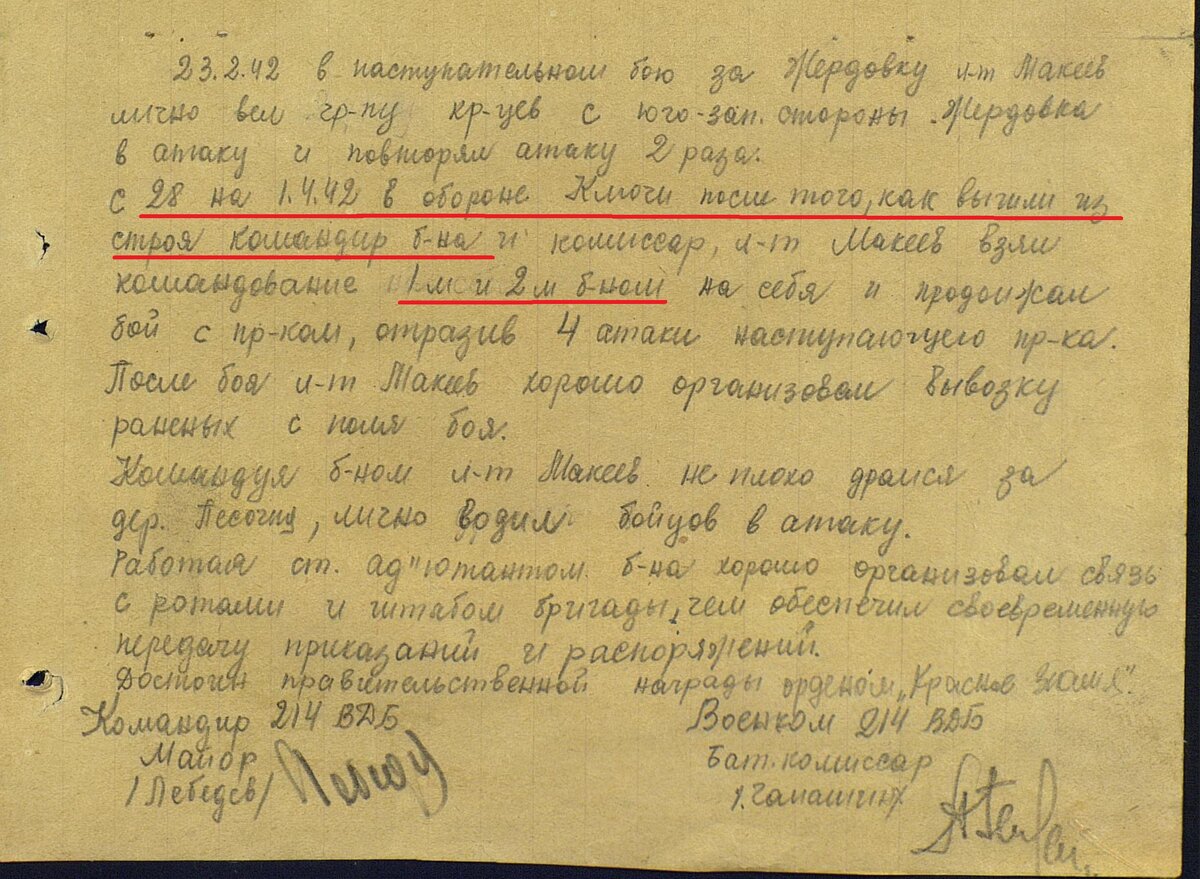 23.2.42 в наступательном бою за Жердовку л-т Макеев
лично вел гр-пу кр-цев с юго-зап. стороны Жердовка
в атаку и повторял атаку 2 раза.
с 28 на 1.4.42 в обороне Ключи после того, как вышли из
строя командир б-на и комиссар, л-т Макеев взял
командование 1м и 2м б-ном на себя и продолжал
бой с пр-ком, отразив 4 атаки наступающего пр-ка.
После боя л-т Макеев хорошо организовал вывозку
раненых с поля боя.
Командуя б-ном л-т Макеев не плохо дрался за
дер. Песочня, лично водил бойцов в атаку.
Работая ст. ад"ютантом б-на хорошо организовал связь
с ротами и штабом бригады, чем обеспечил своевременную
передачу приказаний и распоряжений.
Достоин правительственной награды орденом "Красное Знамя".
Командир 214 ВДБ Военком 214 ВДБ
Майор Бат. комиссар
/Лебедев/